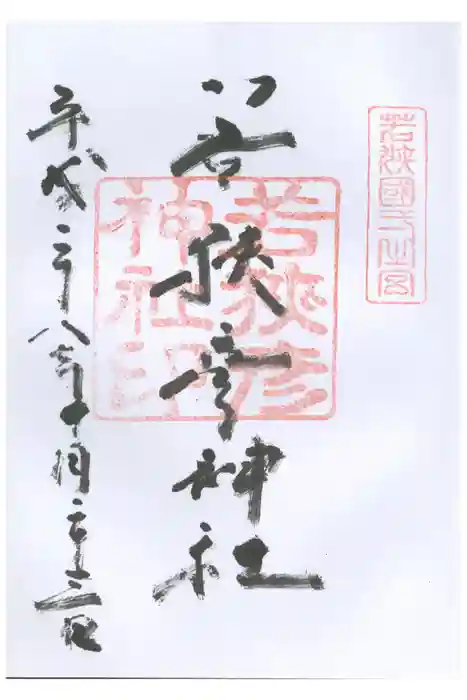 若狭國一之宮
若狭彦神社
若狭彦
神社印
平成二十八年十月二十三日